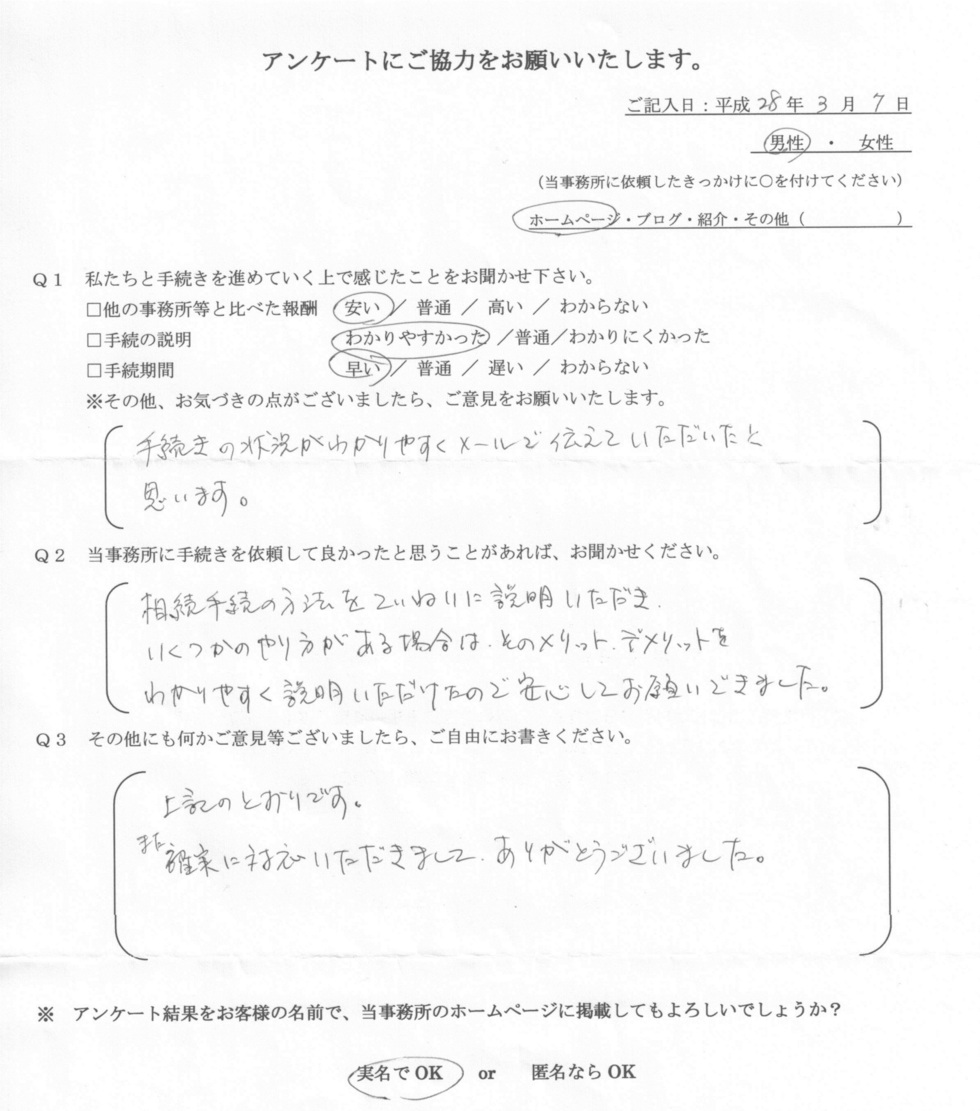 アンケートにご協力をお願いいたします。
ご記入日：平成 28 年 3 月 7 日
男性 ・ 女性
（当事務所に依頼したきっかけに○を付けてください）
ホームページ・ブログ・紹介・その他（ ）
Q1 私たちと手続きを進めていく上で感じたことをお聞かせ下さい。
□他の事務所等と比べた報酬 安い ／ 普通 ／ 高い ／ わからない
□手続の説明 わかりやすかった ／普通／わかりにくかった
□手続期間 早い ／ 普通 ／ 遅い ／ わからない
※その他、お気づきの点がございましたら、ご意見をお願いいたします。
手続きの状況がわかりやすくメールで伝えていただいたと
思います。
Q2 当事務所に手続きを依頼して良かったと思うことがあれば、お聞かせください。
相続手続の方法をていねいに説明いただき、
いくつかのやり方がある場合は、そのメリット、デメリットを
わかりやすく説明いただけたので安心してお願いできました。
Q3 その他にも何かご意見等ございましたら、ご自由にお書きください。
上記のとおりです。
また確実に対応いただきまして、ありがとうございました。
※ アンケート結果をお客様の名前で、当事務所のホームページに掲載してもよろしいでしょうか？
実名でOK or 匿名ならOK